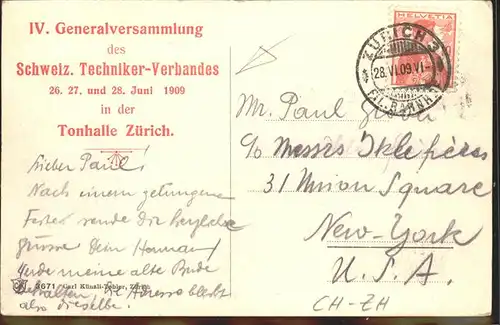 IV. Generalversammlung
des
Schweiz. Techniker-Verbandes
26. 27. und 28. Juni 1909
in der
Tonhalle Zürich.
Lieber Paul!
Nach einem gelungenen
Feste sende Dir herzliche
Grüsse Dein Hermann
Werde meine alte Bude
behalten, die Adresse bleibt
also dieselbe.
3671 Carl Künzli-Tobler, Zürich
HELVETIA
ZÜRICH 3
28.VI.09.VI-
FIL. BAHNH.
Mr. Paul
c/o Messrs
31 Union Square
New-York
U.S.A.
CH-ZH